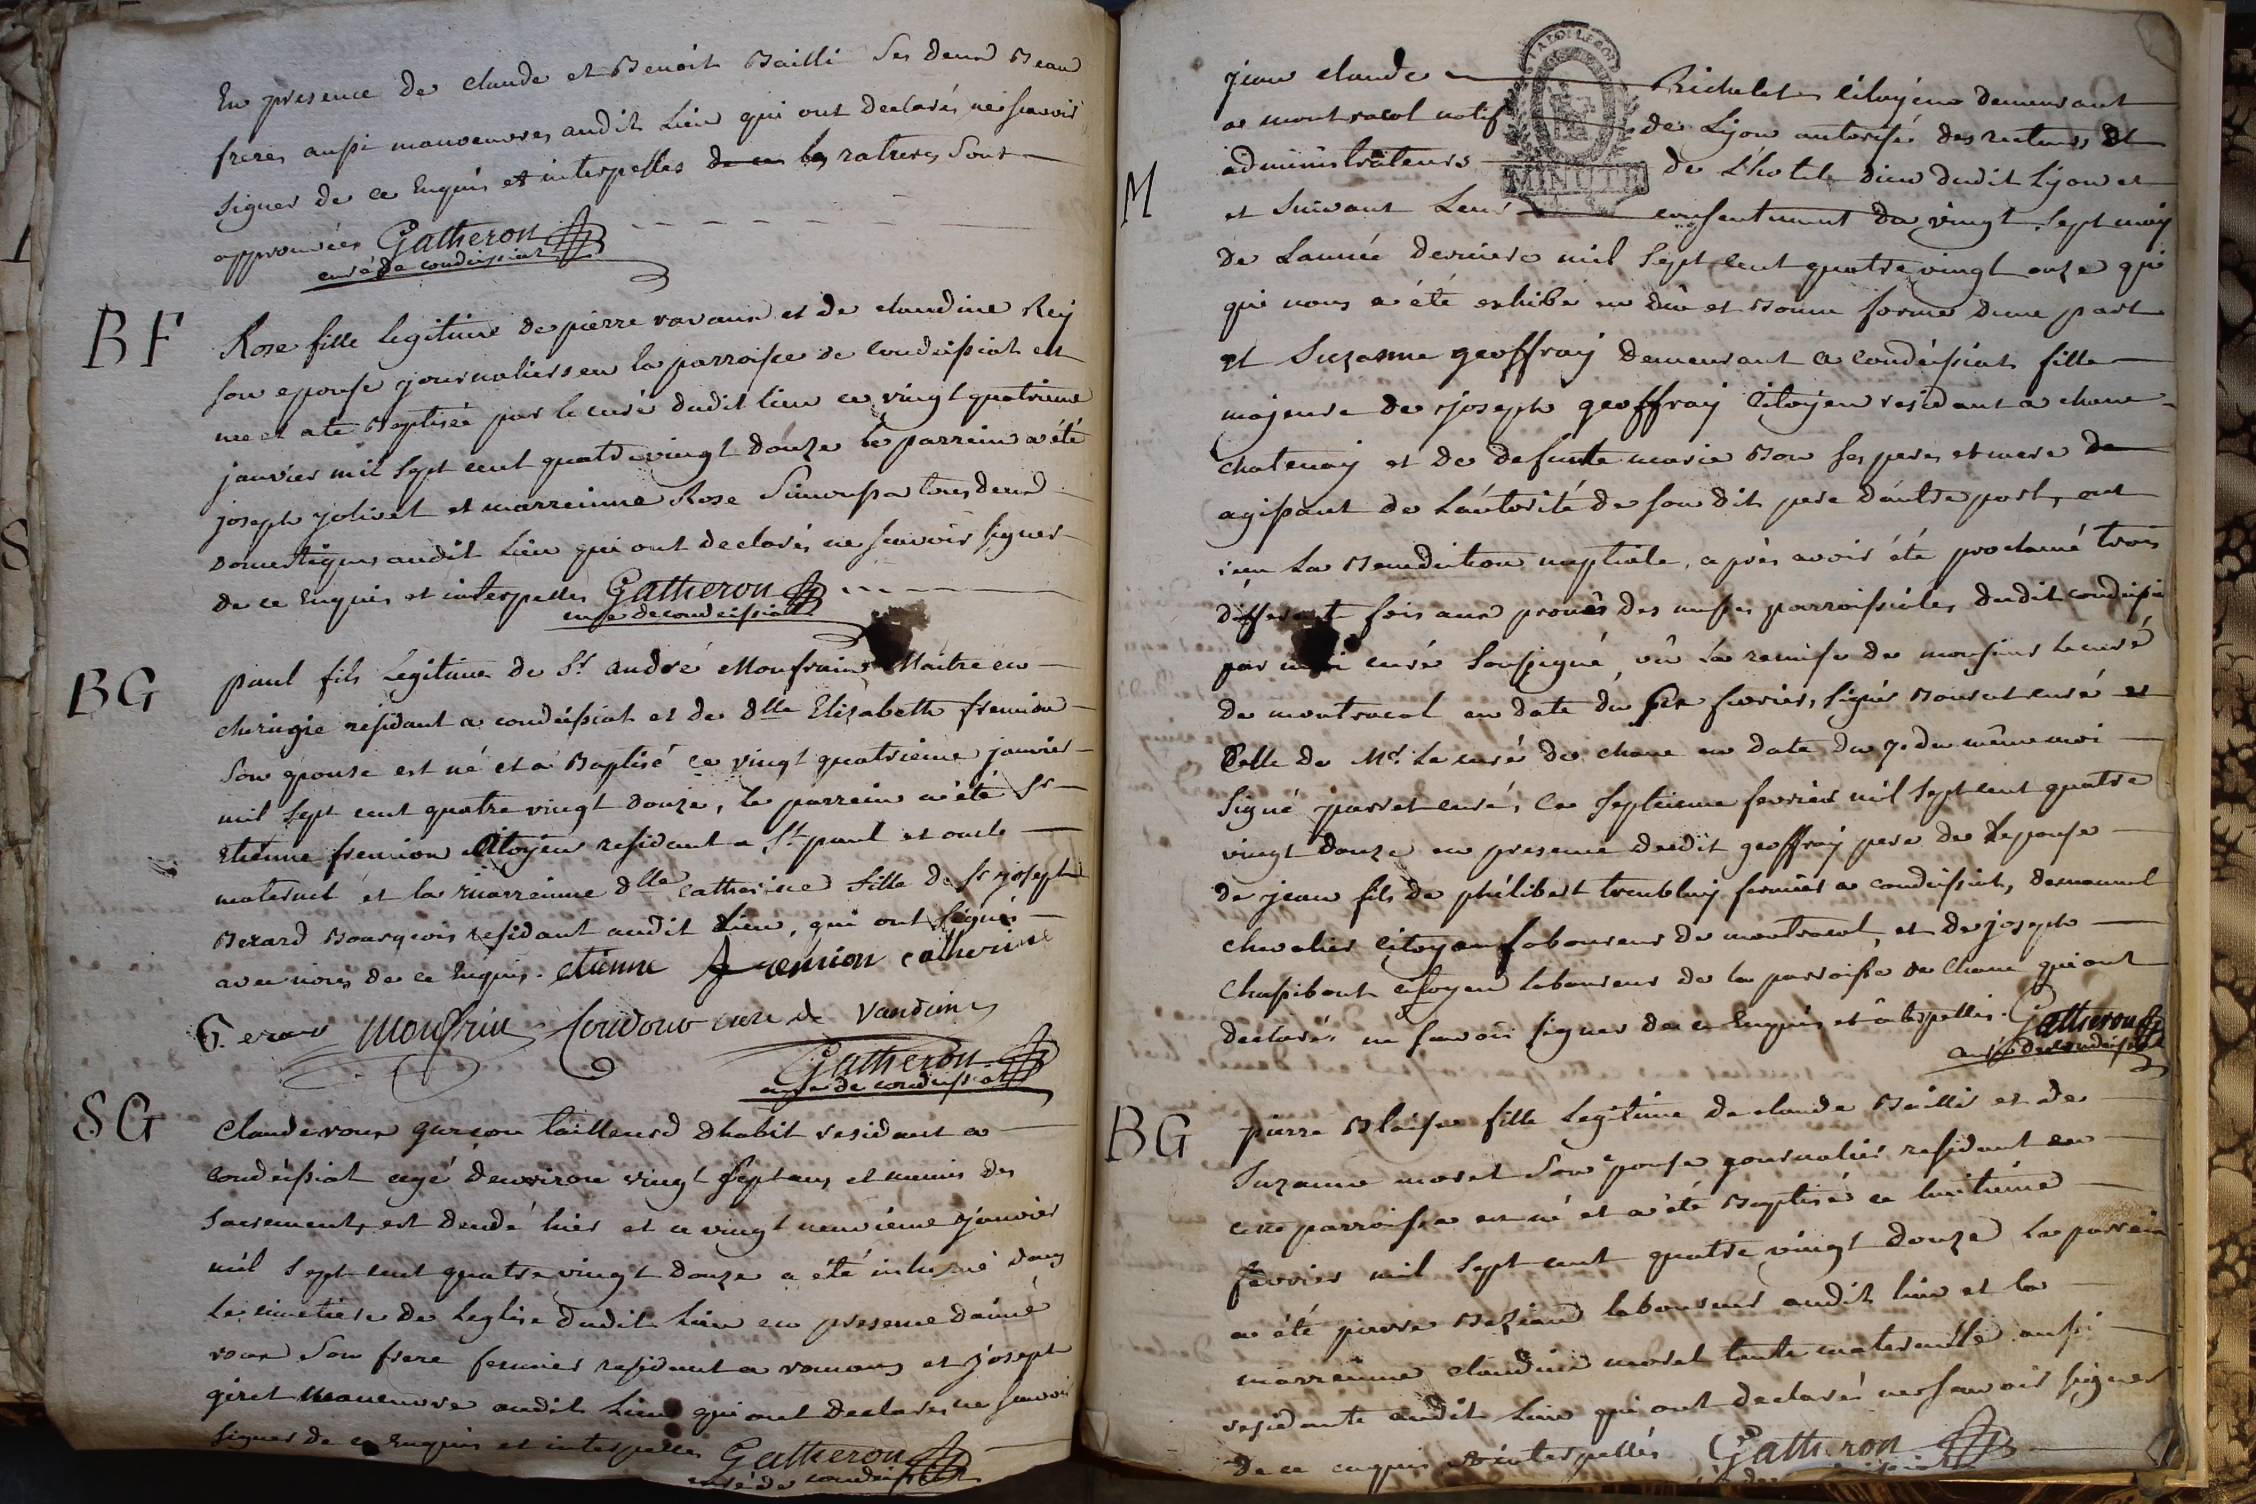 En presence de claude et Benoit Bailli Ses deux Beau
freres aussi manoeuvres audit Lieu qui ont declarés ne scavoir
signer de ce Enquis et interpelles les ratures Sont
approuvées Gatheron
curé de condeissiat
BF
Rose fille legitime de pierre ravaux et de claudine Rey
son epouse journaliers en la parroisse de Condeissiat est
nee et a ete Baptisée par le curé dudit lieu ce vingt quatrieme
janvier mil sept cent quatre vingt douze le parrein a été
joseph jolivet et marreinne Rose tous deux
domestiques audit Lieu qui ont declarés ne scavoir signer
de ce Enquis et interpelles Gatheron
curé de condeissiat
BG
paul fils Legitime de Sr. andré Monfrain Maitre en
chirugie résidant a condéissiat et de dlle Elizabeth fremion
Son epouse est né et a Baptisé ce vingt quatrieme janvier
mil sept cent quatre vingt douze, le parrein a été Sr
Etiénne fremion Citoyen residant a St. paul et oncle
maternel et la marreinne dlle catherine fille de Sr joseph
Bourgeois residant audit Lieu, qui ont signés
avec nous de ce Enquis. etienne fremion catherine
monfrin cure de vandeins
Gatheron
curé de condeissiat
SG
Claude roux garcon tailleurd dhabit residant a
condéissiat agé denviron vingt sept ans et munis des
sacrements, est decedé hier et ce vingt neuvieme janvier
mil sept cent quatre vingt douze a été inhumé dans
Le cimetiere de Leglise dudit Lieu en presence daimé
roux Son frere fermier residant a romans et joseph
giret manoeuvre audit Lieu qui ont declares ne scavoir
signer de ce Enquis et interpelles Gatheron
curé de condeissiat
M
jean claude Richelet Citoyen demeurant
a montracol natif de Lyon autorisé des recteurs Et
administrateurs de L'hotel dieu dudit Lyon et
et suivant Leur consentement du vingt sept may
de Lannée derniere mil sept cent quatre vingt onze qui
qui nous a été exhibé en dûe et Bonne forme dune part
et Suzanne geoffray demeurant a condéissiat fille
majeure de joseph geoffray Citoyen residant a chane
chatenay et de defunte marie Bon ses pere et mere de
agissant de Láutorité de son dit pere dáutre part, ont
La Benediction nuptiale, après avoir été proclamé trois
differente fois aux prones des messes parroissiales dudit condeissia
par moi curé soussigné, vû La remise de monsieur le curé
de montracol en date du fevrier, signés curé et
Celle de Mr. Le curé de chane en date du 7. du même moi
signé curé, Ce septieme fevrier mil sept cent quatre
vingt douze en presence dudit geoffray pere de Lepouse
de jean fils de philibert trembley fermier a condeissiat,
chevalier Citoyen laboureur de montracol, et de joseph
citoyen laboureur de la parroisse de Chane qui ont
declarés ne scavoir signer de ce Enquis et interpellés. Gatheron
curé de condeissiat
BG
pierre Blaise fille Legitime de claude Bailli et de
Suzanne moret Son epouse journalier residant en
cette parroisse est né et a été Baptisé ce huitiéme
fevrier mil sept cent quatre vingt douze Le parrein
a été pierre laboureur audit lieu et la
marreinne claudine moret tante maternelle aussi
residante audit Lieu qui ont declarés ne scavoir signer
de ce enquis et interpellés Gatheron
LA LOI LE ROI
MINUTE